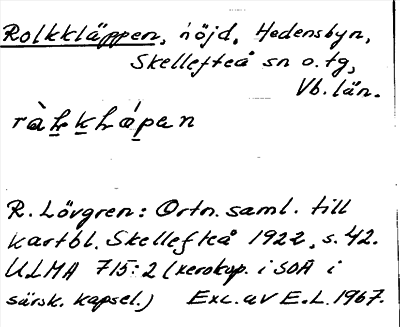 Rolkkläppen, höjd, Hedensbyn,
Skellefteå sn o. tg,
Vb. län.
R. Lövgren: Ortn. saml. till
kartbl. Skellefteå 1922, s. 42.
ULMA 715:2 (xerokop. i SOA i
särsk. kapsel.) Exc. av E.L. 1967.